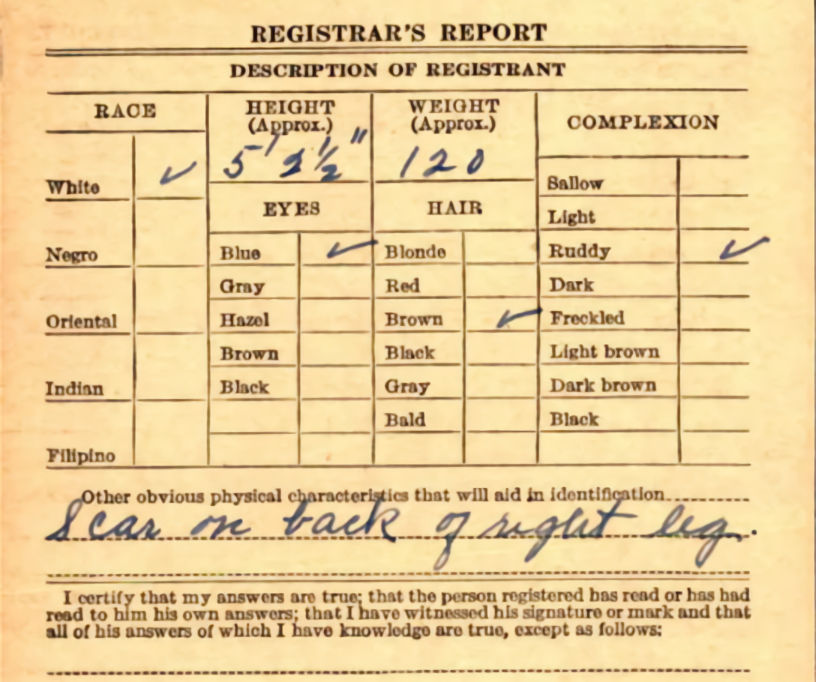 REGISTRAR'S REPORT
DESCRIPTION OF REGISTRANT
RACE HEIGHT (Approx.) WEIGHT (Approx.) COMPLEXION
5' 2½" 120
White ✓ EYES HAIR Sallow
Light
Negro Blue ✓ Blonde Ruddy ✓
Gray Red Dark
Oriental Hazel Brown ✓ Freckled
Brown Black Light brown
Indian Black Gray Dark brown
Bald Black
Filipino
Other obvious physical characteristics that will aid in identification
Scar on back of right leg.
I certify that my answers are true; that the person registered has read or has had
read to him his own answers; that I have witnessed his signature or mark and that
all of his answers of which I have knowledge are true, except as follows: